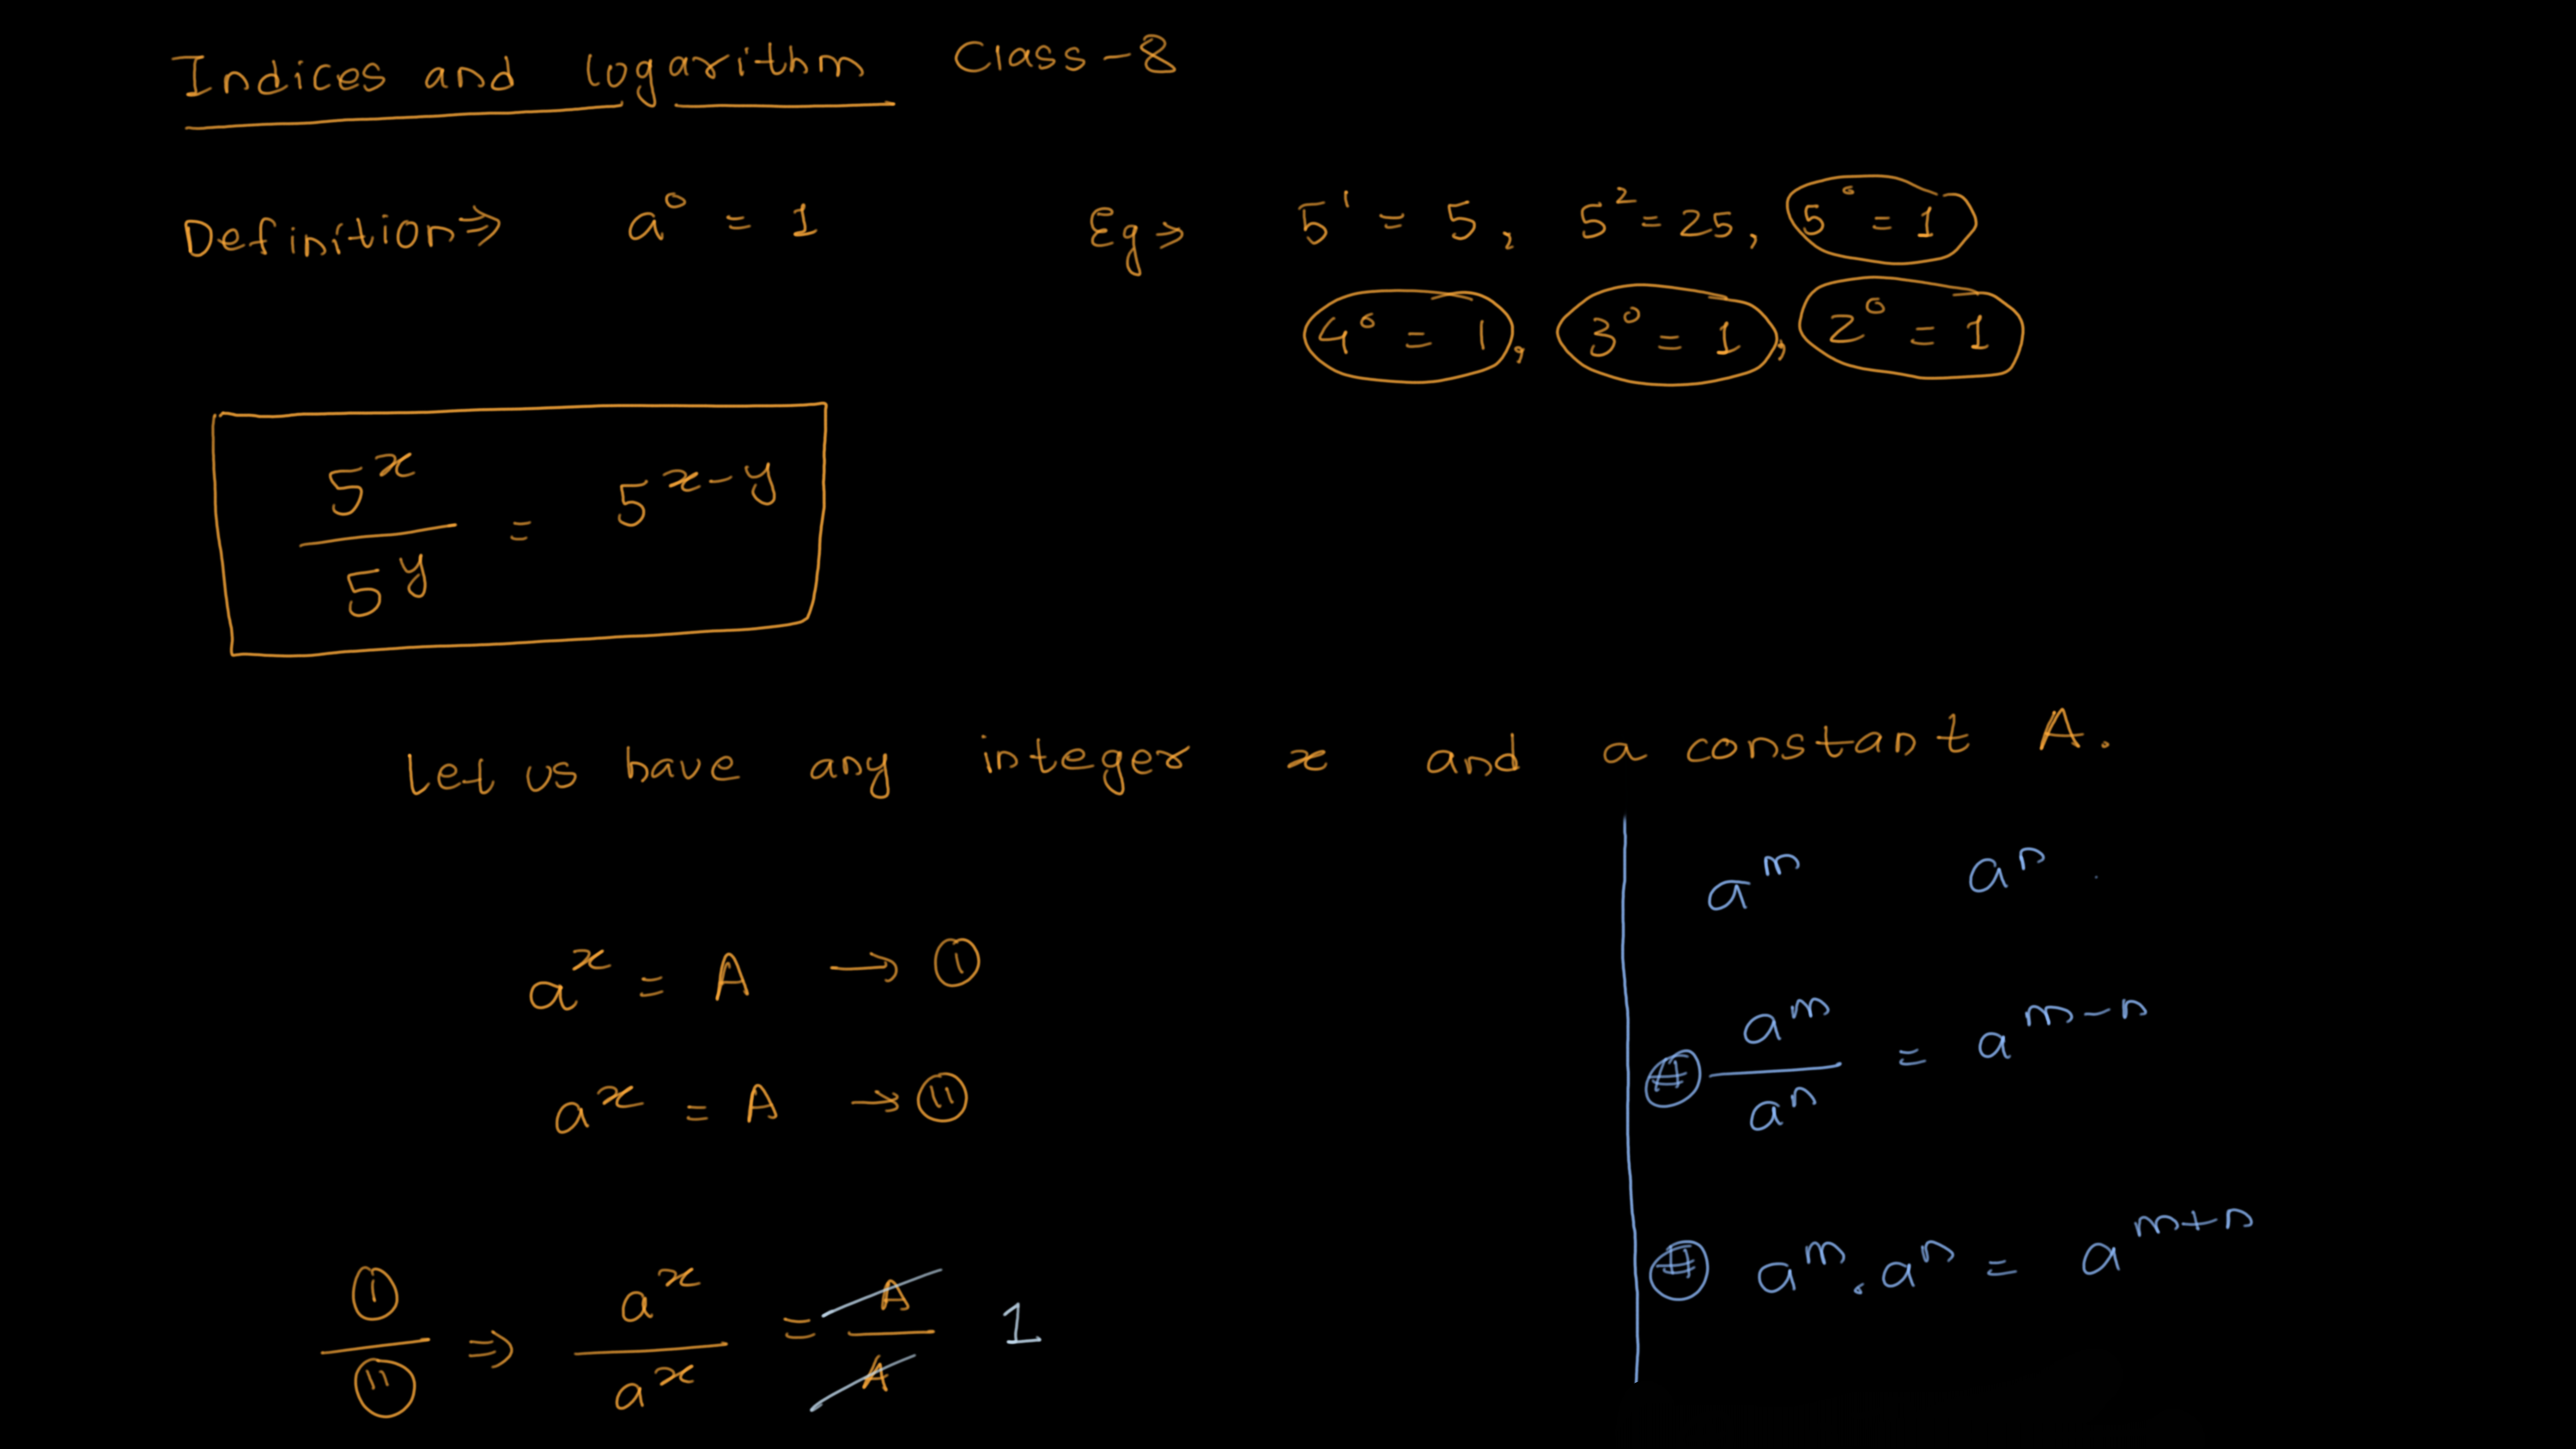 Indices and logarithm Class-8
Definition⇒ a⁰ = 1 Eg⇒ 5¹ = 5, 5² = 25, 5⁰ = 1
4⁰ = 1, 3⁰ = 1, 2⁰ = 1
5^x / 5^y = 5^(x-y)
Let us have any integer x and a constant A.
a^x = A → (I)
a^x = A → (II)
(I) / (II) ⇒ a^x / a^x = A / A 1
a^m a^n
# a^m / a^n = a^(m-n)
# a^m . a^n = a^(m+n)